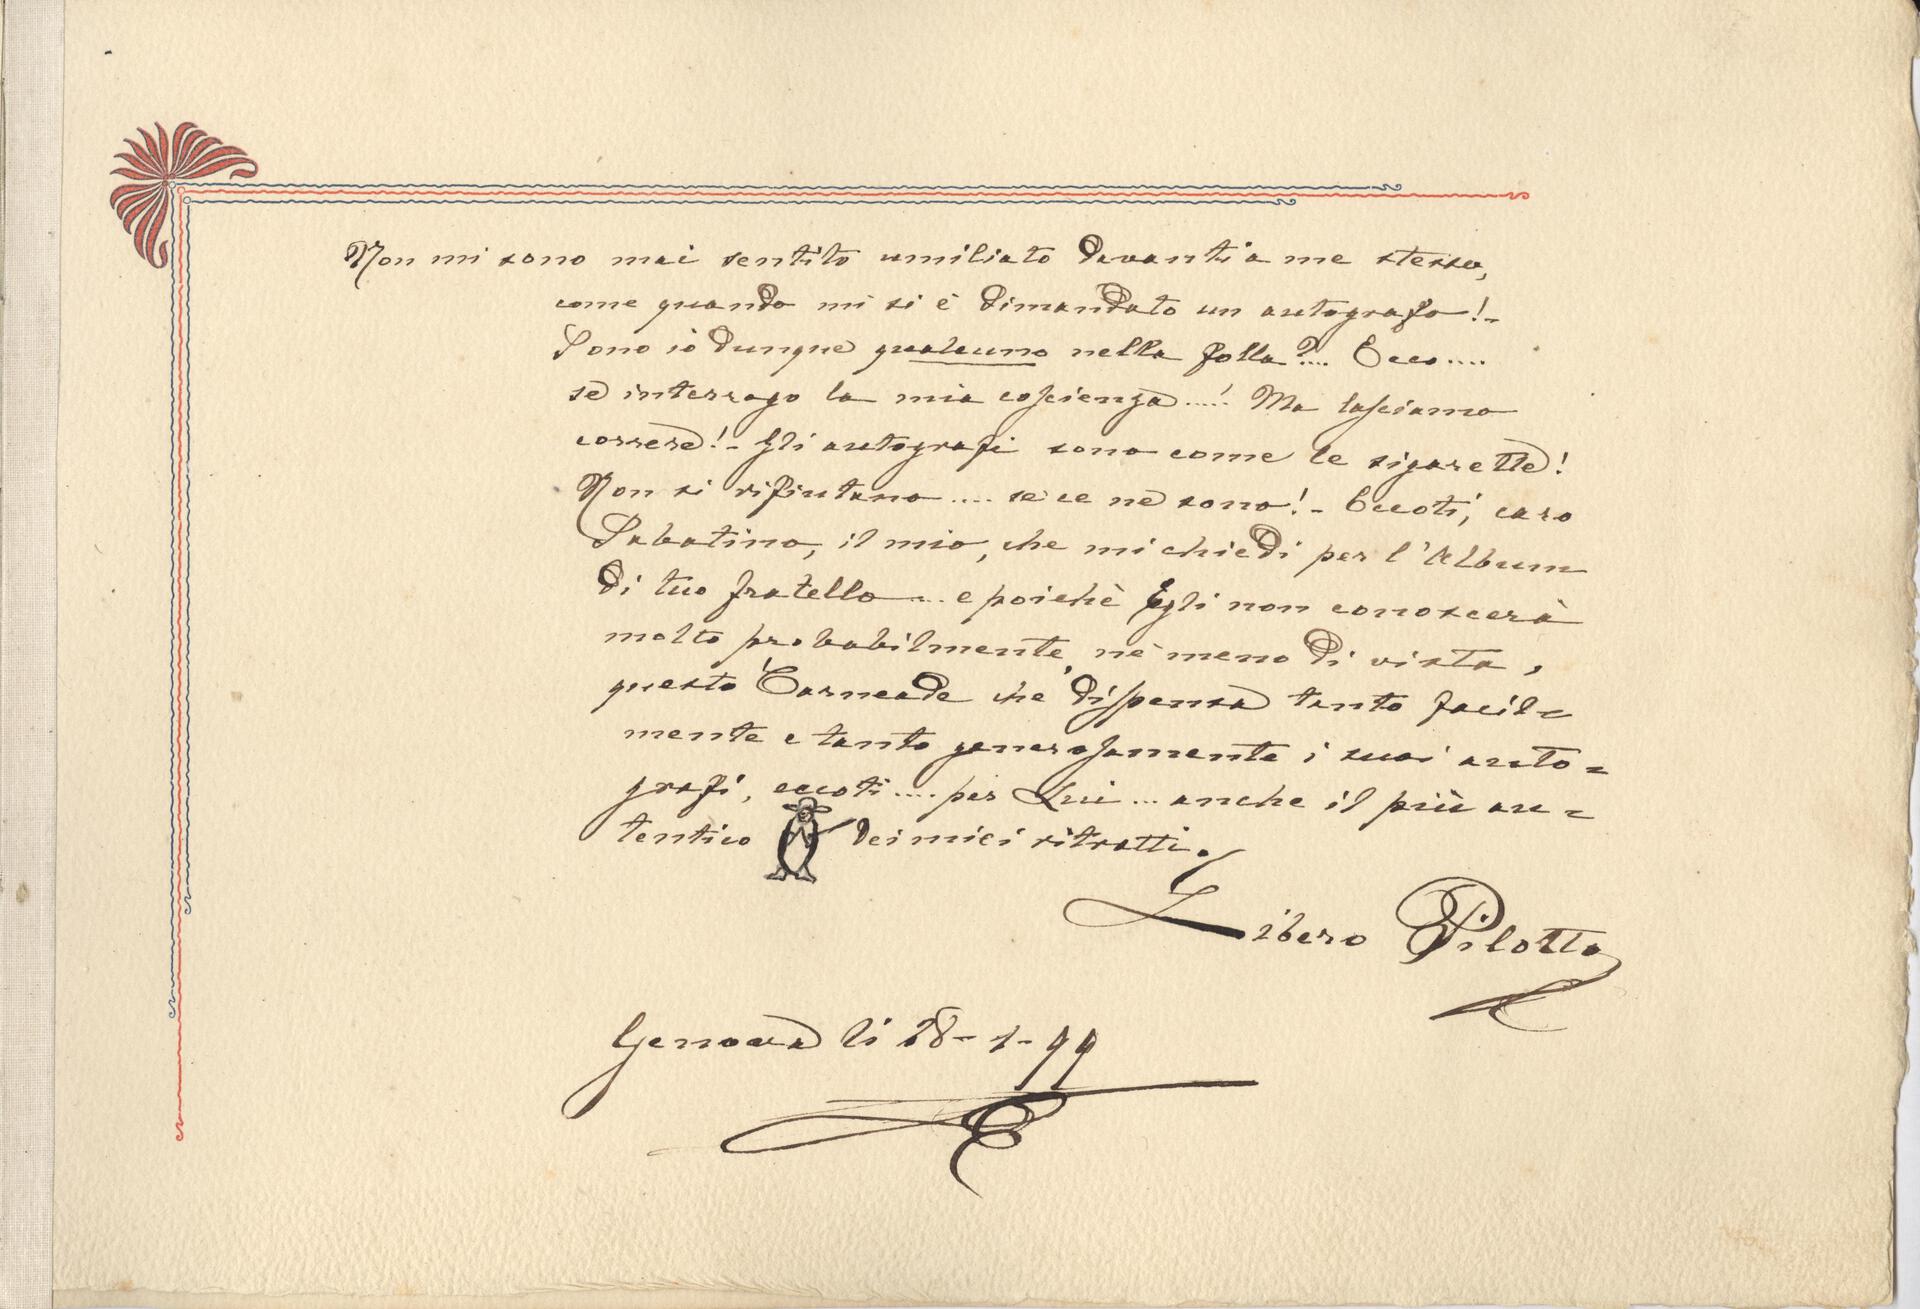 Non mi sono mai sentito umiliato davanti a me stesso,
come quando mi si è dimandato un autografo!-
Sono io dunque qualcuno nella folla?... Ecco....
se interrogo la mia coscienza....! Ma lasciamo
correre!- Gli autografi sono come le sigarette!
Non si rifiutano.... se ce ne sono!- Eccoti, caro
Sabatino, il mio, che mi chiedi per l'Album
di tuo fratello... e poichè Egli non conoscerà
molto probabilmente nè meno di vista,
questo Carneade che dispensa tanto facil=
mente e tanto generosamente i suoi auto=
grafi, eccoti.... per Lui... anche il più au=
tentico dei miei ritratti.
Libero Pilotto
Genova li 28-1-99